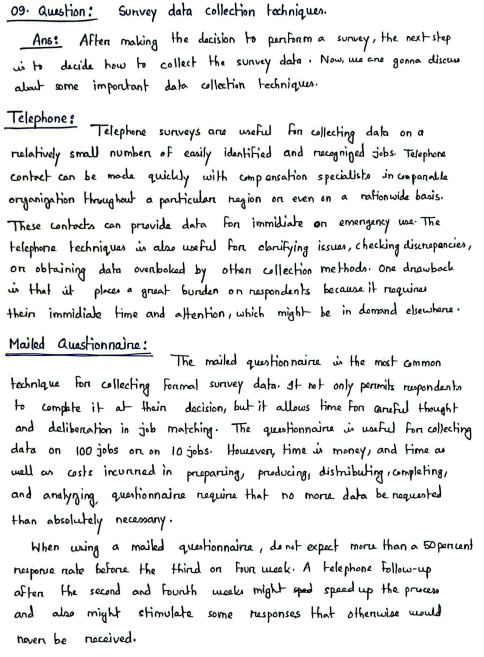 09. Question: Survey data collection techniques.
Ans: After making the decision to perform a survey, the next step
is to decide how to collect the survey data. Now, we are gonna discuss
about some important data collection techniques.
Telephone:
Telephone surveys are useful for collecting data on a
relatively small number of easily identified and recognized jobs. Telephone
contact can be made quickly with compensation specialists in comparable
organization throughout a particular region or even on a nationwide basis.
These contacts can provide data for immidiate or emergency use. The
telephone techniques is also useful for clarifying issues, checking discrepancies,
or obtaining data overlooked by other collection methods. One drawback
is that it places a great burden on respondents because it requires
their immidiate time and attention, which might be in demand elsewhere.
Mailed Questionnaire:
The mailed questionnaire is the most common
technique for collecting formal survey data. It not only permits respondents
to complete it at their decision, but it allows time for careful thought
and deliberation in job matching. The questionnaire is useful for collecting
data on 100 jobs or on 10 jobs. However, time is money, and time as
well as costs incurred in preparing, producing, distributing, completing,
and analyzing questionnaire require that no more data be requested
than absolutely necessary.
When using a mailed questionnaire, do not expect more than a 50 percent
response rate before the third or four week. A telephone follow-up
after the second and fourth weeks might speed up the process
and also might stimulate some responses that otherwise would
never be received.